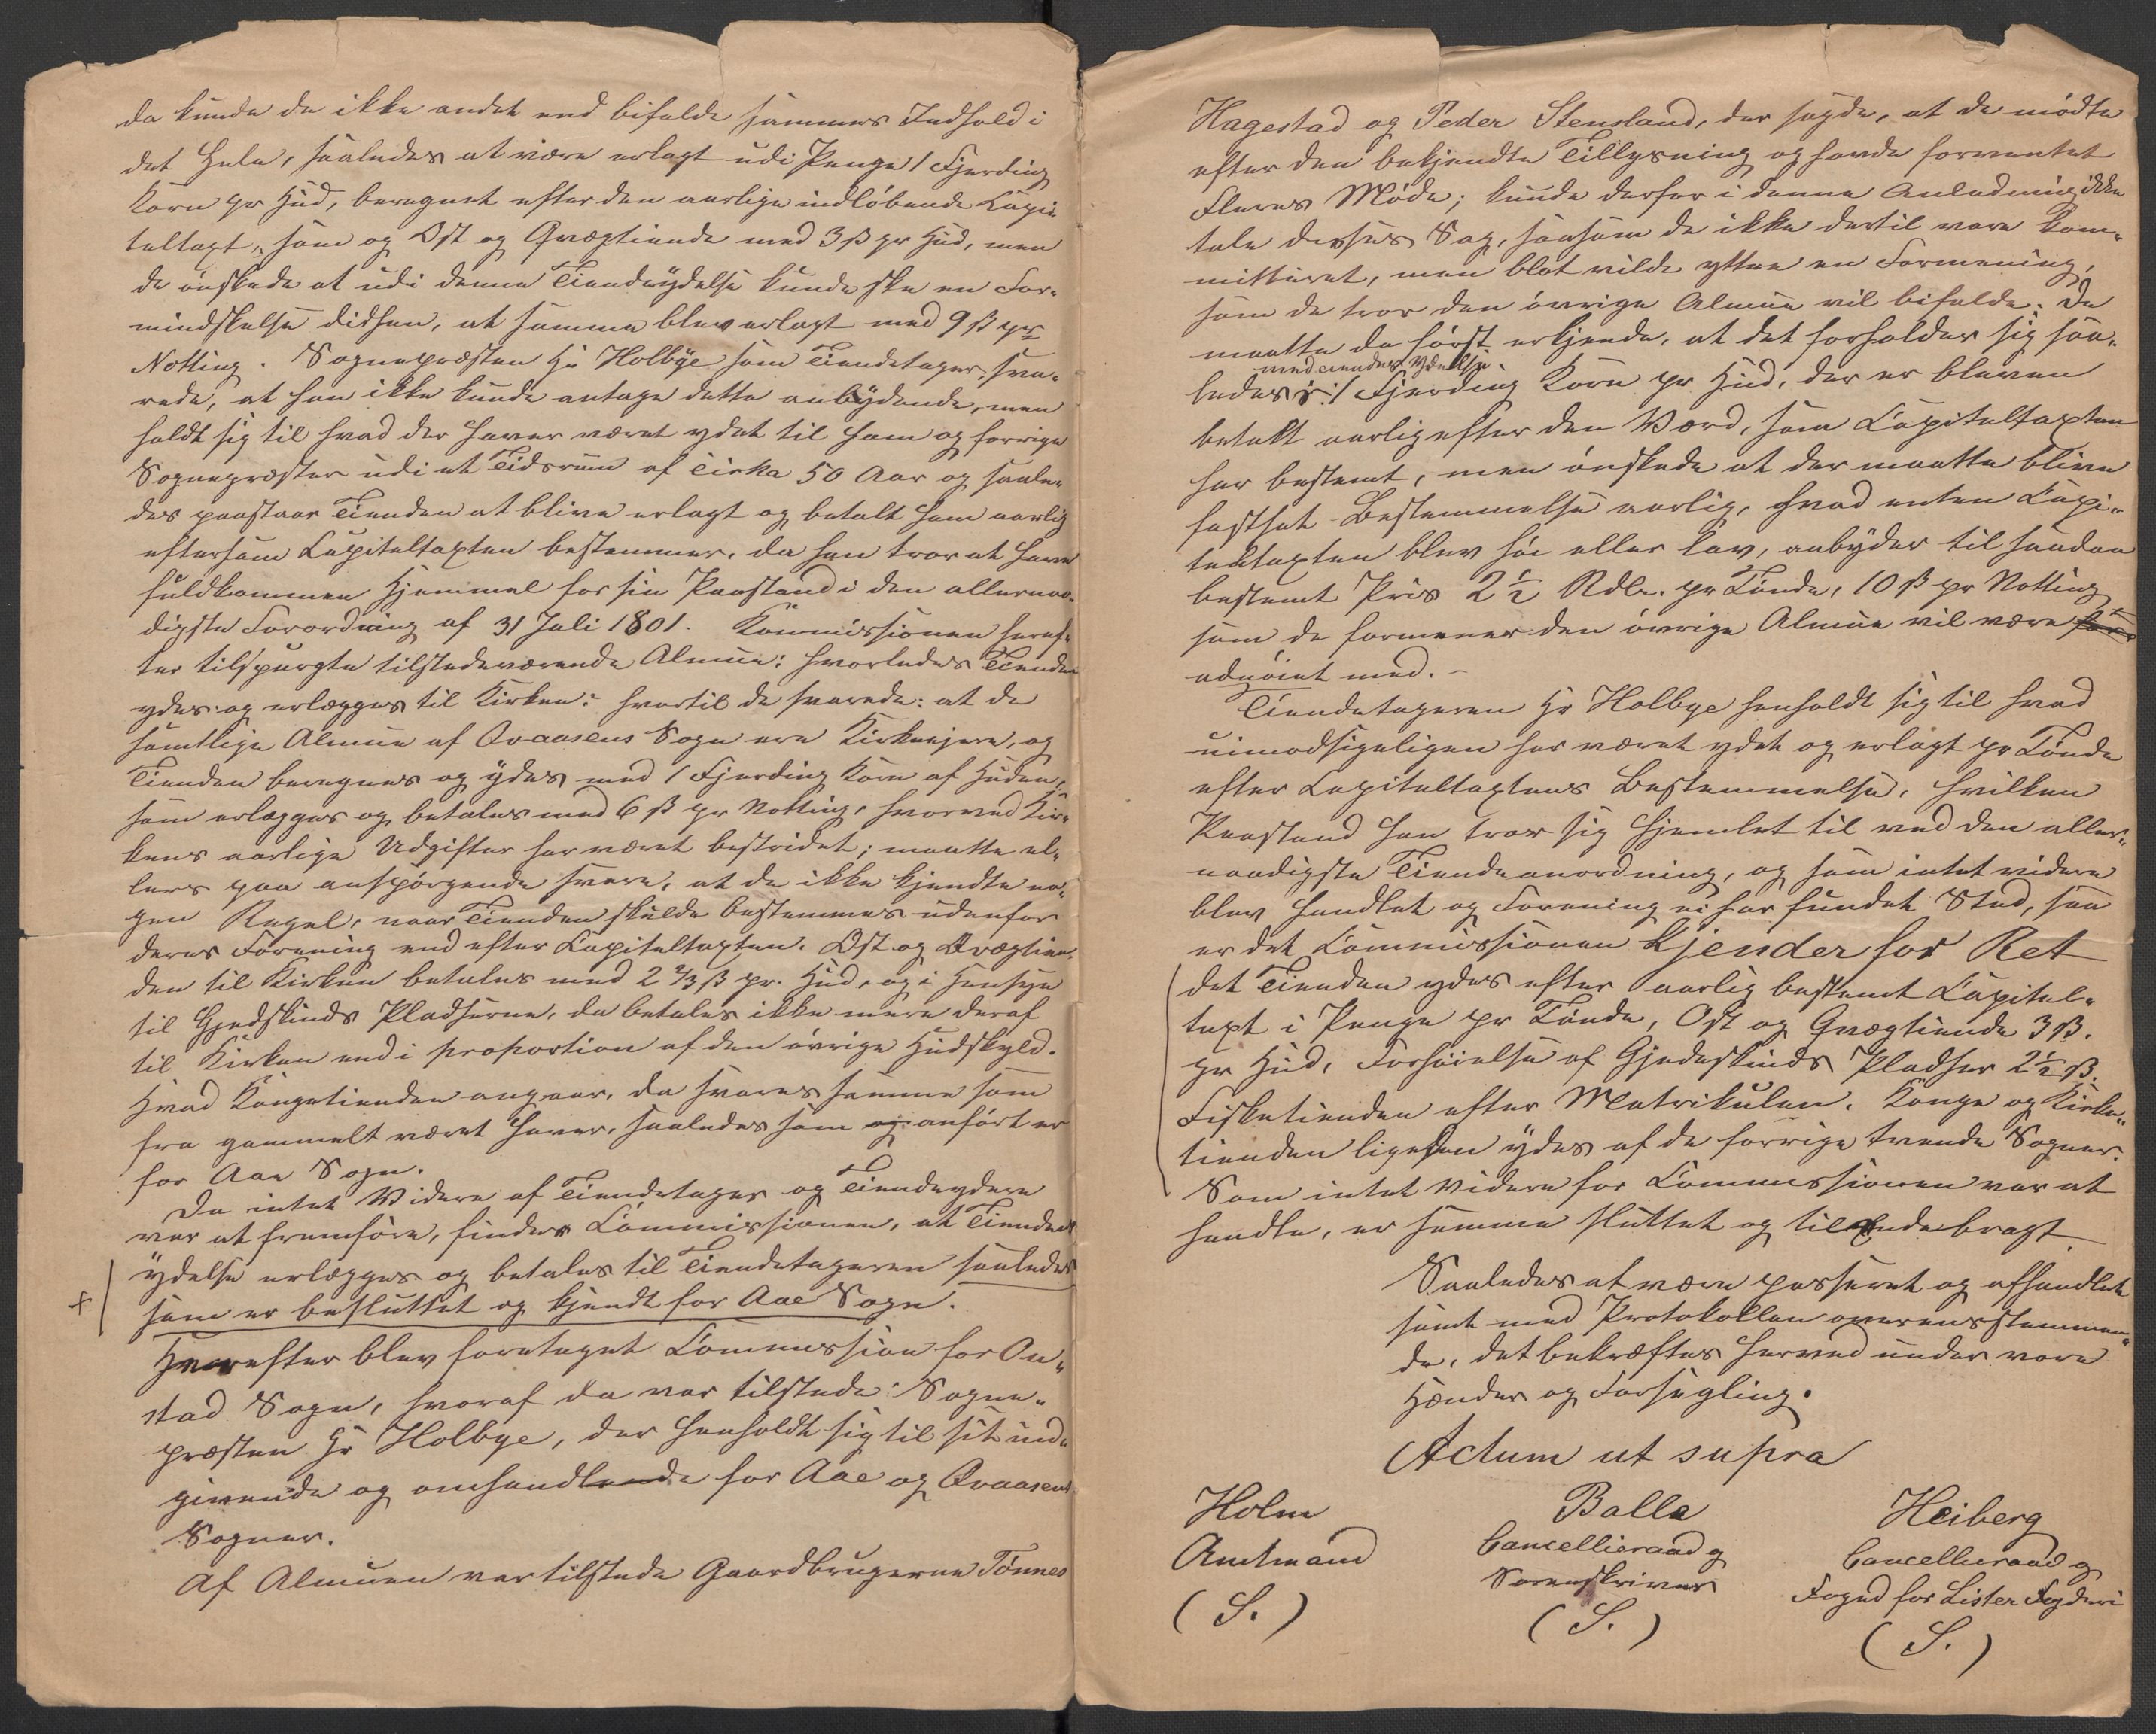 da kunde de ikke andet end bifalde sammes Indhold i
det Hele, saaledes at være erlagt udi Penge 1 Fjerding
Korn pr Hud, beregnet efter den aarlige indløbende Capi-
teltaxt, som og Ost og Qvægtiende med 3 ß pr Hud, men
de ønskede at udi denne Tiendeydelse kunde ske en For-
mindskelse didhen, at samme blev erlagt med 9 ß pr
Notting. Sognepræsten Hr Holbye som Tiendetager, sva-
rede, at han ikke kunde antage dette anbydende, men
holdt sig til hvad der haver været ydet til ham og forrige
Sognepræster udi et Tidsrum af cirka 50 Aar og saale-
des paastaar Tienden at blive erlagt og betalt ham aarlig
eftersom Capiteltaxten bestemmer, da han tror at have
fuldkommen Hjemmel for sin Paastand i den allernaa-
digste Forordning af 31 Juli 1801. Kommissionen heref-
ter tilspurgte tilstedeværende Almue: hvorledes Tienden
ydes og erlægges til Kirken? hvortil de svarede: at de
samtlige Almue af Qvaasens Sogn ere Kirkeejere, og
Tienden beregnes og ydes med 1 Fjerding Korn af Huden,
som erlægges og betales med 6 ß pr Notting, hvorved Kir-
kens aarlige Udgifter har været bestridt; maatte el-
lers paa anspørgende svare, at de ikke kjendte no-
gen Regel, naar Tienden skulde bestemmes udenfor
deres Forening end efter Capiteltaxten. Ost og Qvægtien-
den til Kirken betales med 2 2/3 ß pr. Hud, og i Hensyn
til Gjedskinds Pladserne, da betales ikke mere deraf
til Kirken end i proportion af den øvrige Hudskyld.
Hvad Kongetienden angaar, da svares samme som
fra gammelt været haver, saaledes som og anført er
for Aae Sogn.
Da intet Videre af Tiendetager og Tiendeydere
var at fremføre, finder Commissionen, at Tiendens
ydelse erlægges og betales til Tiendetageren saaledes
som er besluttet og kjendt for Aae Sogn.
Hvorefter blev foretaget Commission for Au-
stad Sogn, hvoraf da var tilstede: Sogne-
præsten Hr Holbye, der henholdt sig til sit ind-
givende og omhandlende for Aae og Qvaasens
Sogner.
Af Almuen var tilstede Gaardbrugerne Tønnes
Hagestad og Peder Stensland, der sagde, at de mødte
efter den bekjendte Tillysning og havde forventet
Fleres Møde; kunde derfor i denne Anledning ikke
tale disses Sag, saasom de ikke dertil vare kom-
mitteret, men blot vilde yttre en Formening,
som de tror den øvrige Almue vil bifalde. De
maatte da først erkjende, at det forholder sig saa-
med tiendes Ydelse
ledes i: 1 Fjerding Korn pr Hud, der er bleven
betalt aarlig efter den Værd, som Capiteltaxten
har bestemt, men ønskede at der maatte blive
fastsat Bestemmelse aarlig, hvad enten Capi-
teltaxten blev høi eller lav, anbyder til saadan
bestemt Pris 2 1/2 Rdlr. pr Tønde, 10 ß pr Notting
som de formener den øvrige Almue vil være for
adnøiet med. –
Tiendetageren Hr Holbye henholdt sig til hvad
uimodsigeligen har været ydet og erlagt pr Tønde
efter Capiteltaxtens Bestemmelse, hvilken
Paastand han tror sig hjemlet til ved den aller-
naadigste Tiendeanordning, og som intet videre
blev handlet og Forening ei har fundet Sted, saa
er det Commissionen kjender for Ret
det Tienden ydes efter aarlig bestemt Capitel-
taxt i Penge pr Tønde, Ost og Qvægtiende 3 ß.
pr Hud, Forhøielse af Gjedeskinds Pladser 2 1/2 ß.
Fisketienden efter Matrikulen. Konge og Kirke-
tienden ligesaa ydes af de forrige tvende Sogner.
Som intet videre for Commissionen var at
handle, er samme sluttet og tilendebragt.
Saaledes at være passeret og afhandlet
samt med Protokollen overensstemmen-
de, det bekræftes herved under vore
Hænder og Forsegling.
Actum ut supra
Holm Balle Heiberg
Amtmand Cancelliraad og Cancelliraad og
Sorenskriver Foged for Lister Fogderi
(S.) (S.) (S.)